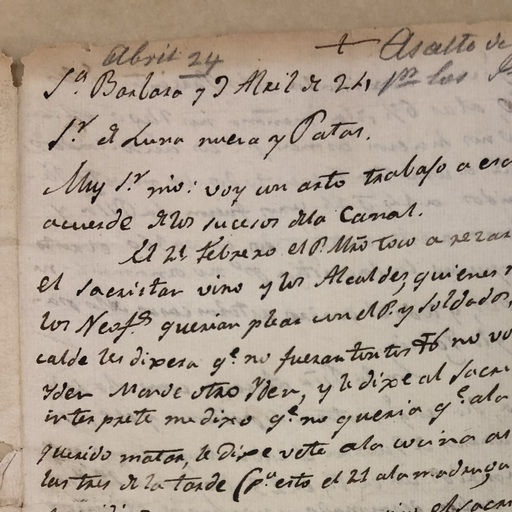 Abril 24
Asalto de
Sª Barbara y 9 Abril de 24 pr los
Sr. d Luna nueva y Patas.
Muy Sr. mio: voy con arto trabajo a esc
acuerde de los sucesos dela Canal.
El 21 Febrero el P. Mro toco a rezar
el sacristan vino y los Alcaldes, quienes
los Neofs querian pelear con el P. y soldados,
calde les dixera qe. no fueran tontos no vo
yden Mande otro Yden, y le dixe al Sacri
interprete me dixo qe. no queria qe. ala
querido matar, le dixe vete ala cocina
las tres de la tarde (pr. esto el 21 ala madruga